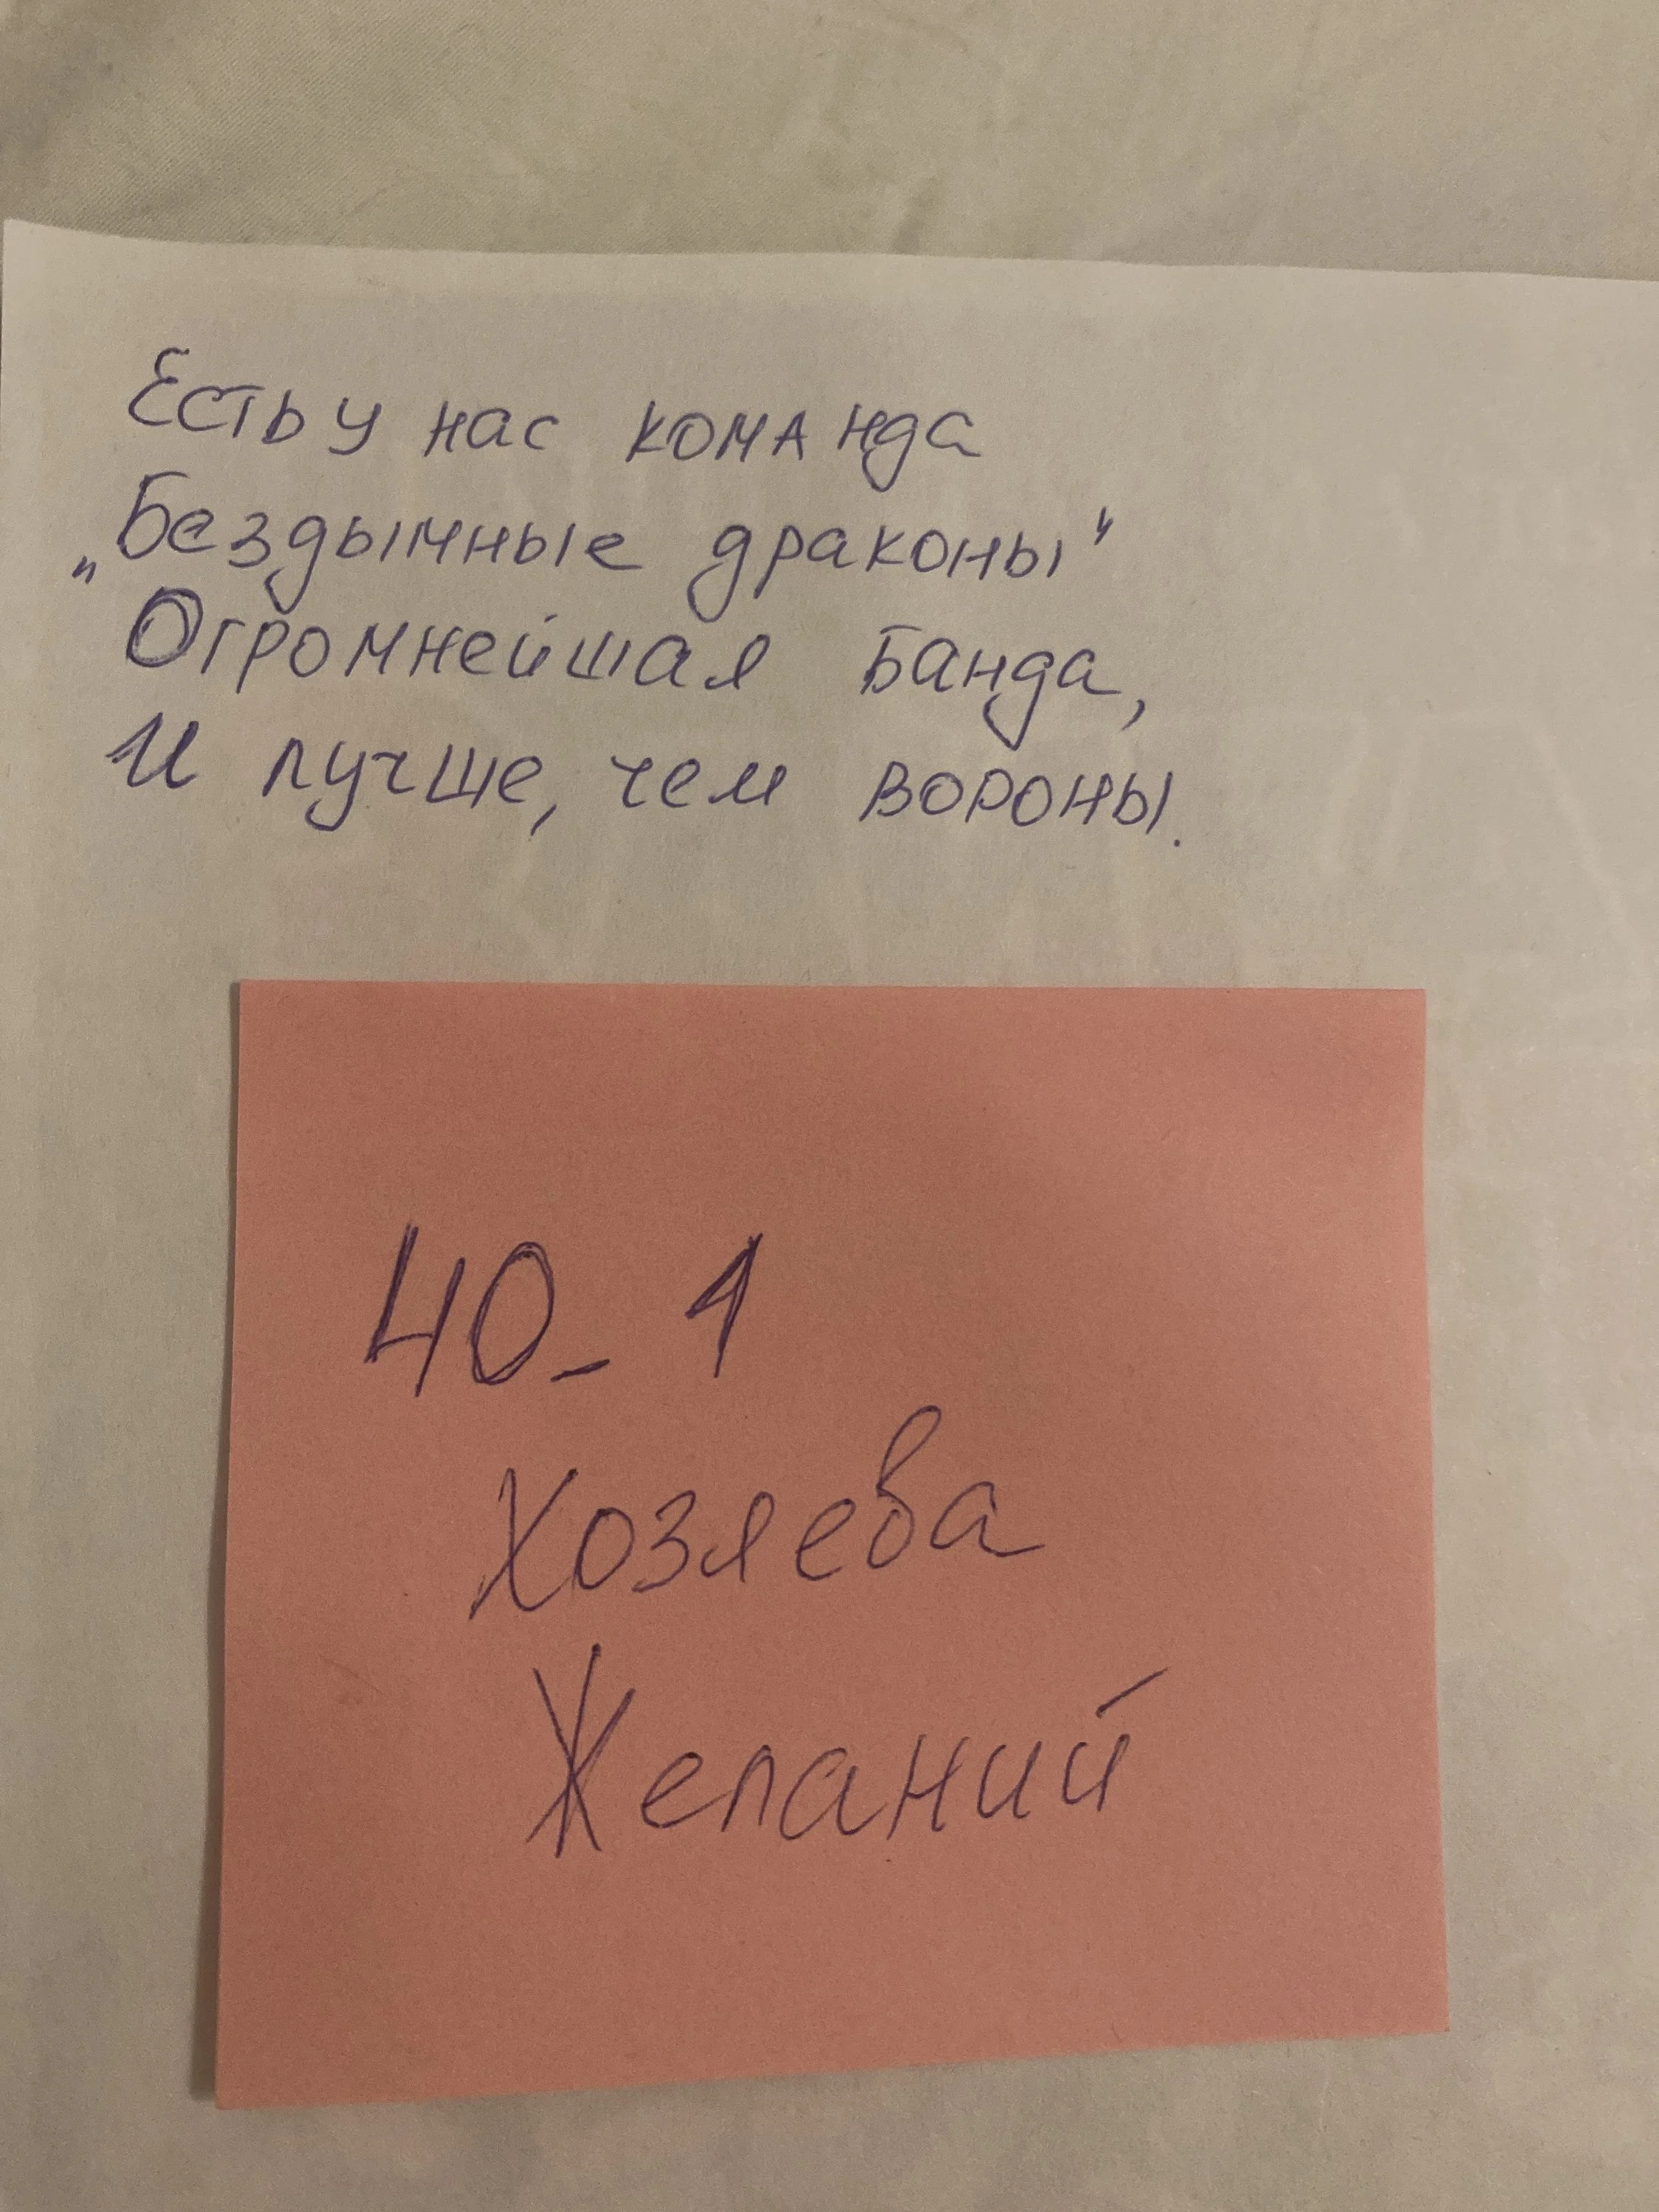 Есть у нас команда
„Бездымные драконы"
Огромнейшая банда,
И лучше, чем вороны.
40_1
Хозяева
Желаний